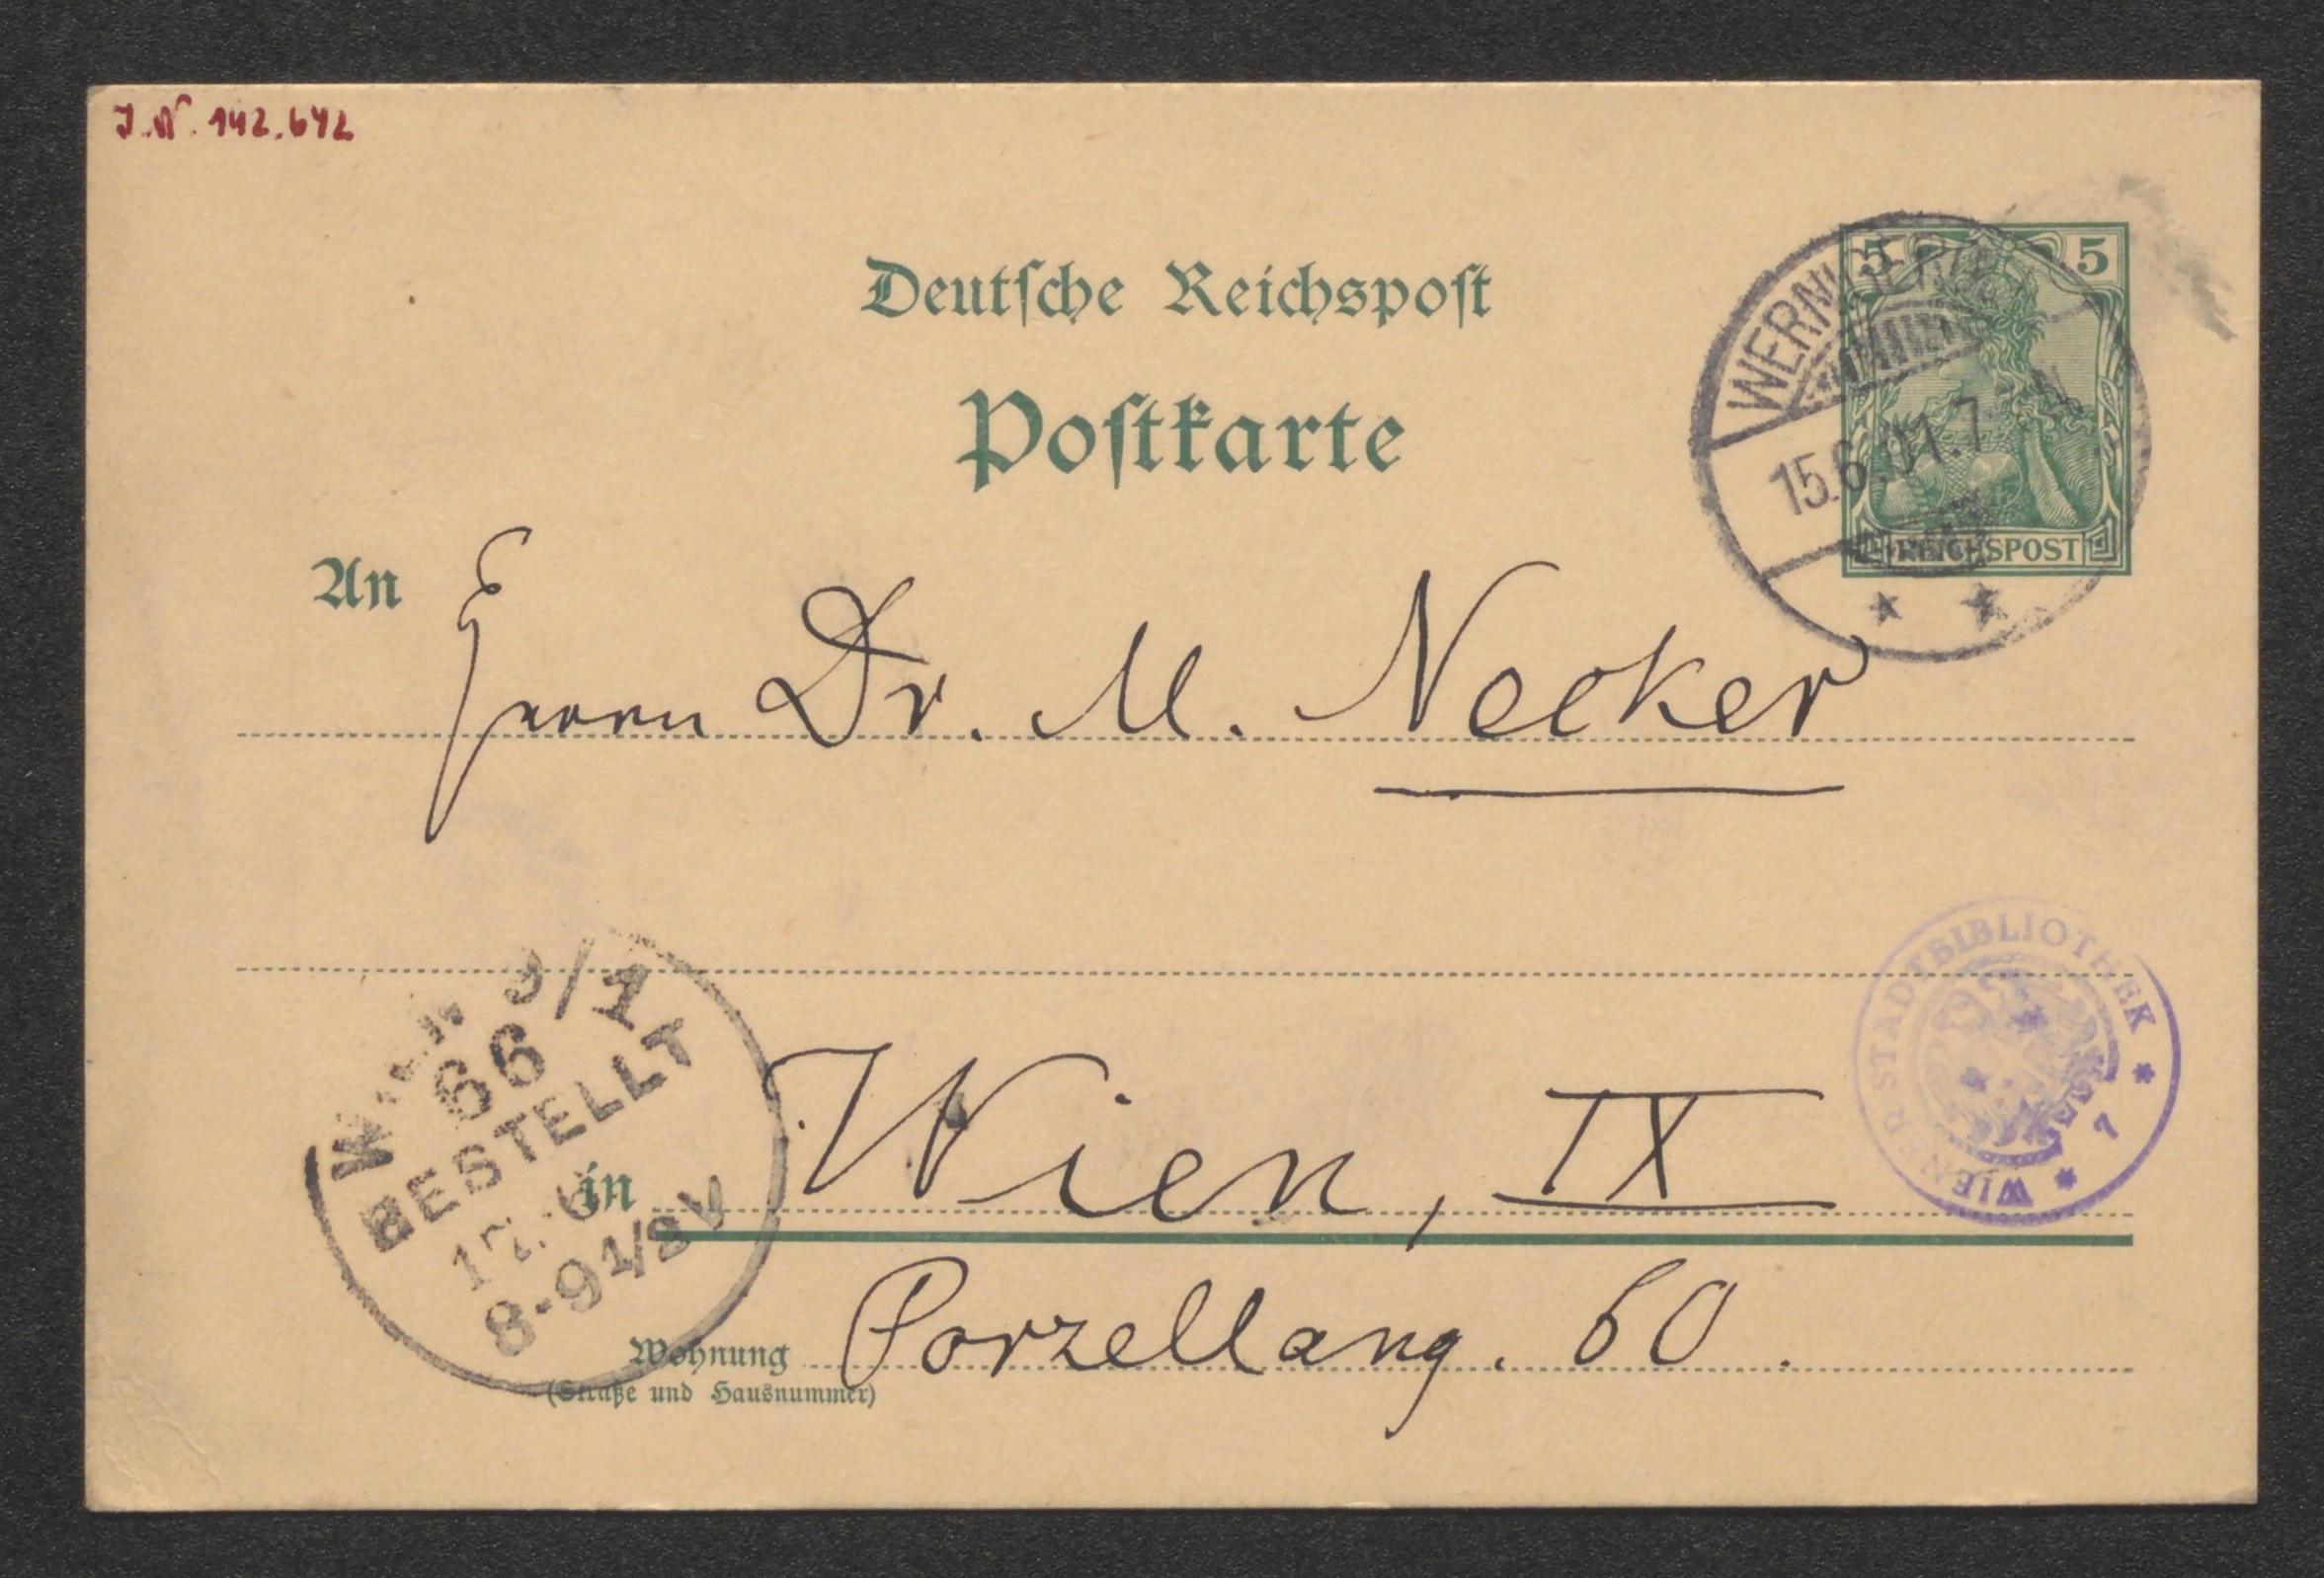 J.N. 142.642
Deutsche Reichspost
Postkarte
5 5
REICHSPOST
WERNIGERODE
15.6.01.7
An Herrn Dr. M. Necker
WIENER STADTBIBLIOTHEK * 7 *
WIEN 9/1
66
BESTELLT
17.6
8-9 1/2 V
in Wien, IX
Wohnung Porzellang. 60.
(Straße und Hausnummer)